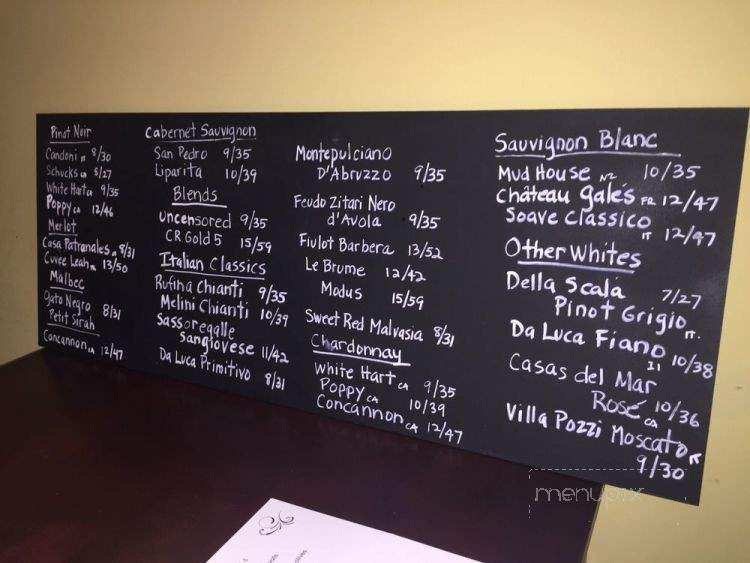 Pinot Noir
Candoni 8/30
Schucks CA 8/27
White Hart CA 9/35
Poppy CA 12/46
Merlot
Casa Patronales 8/31
Cuvee Leah 13/50
Malbec
Gato Negro 8/31
Petit Sirah
Concannon CA 12/47
Cabernet Sauvignon
San Pedro 9/35
Liparita 10/39
Blends
uncensored 9/35
CR Gold 5 15/59
Italian Classics
Rufina Chianti 9/35
Melini Chianti 10/39
Sassoregalle
Sangiovese 11/42
Da Luca Primitivo 8/31
Montepulciano
D'Abruzzo 9/35
Feudo Zitari Nero
d'Avola 9/35
Fiulot Barbera 13/52
Le Brume 12/42
Modus 15/59
Sweet Red Malvasia 8/31
Chardonnay
White Hart CA 9/35
Poppy CA 10/39
Concannon CA 12/47
Sauvignon Blanc
Mud House NZ 10/35
Château Gales FR 12/47
Soave Classico
IT 12/47
Other Whites
Della Scala 7/27
Pinot Grigio IT.
Da Luca Fiano 10/38
Casas del Mar
Rosé CA 10/36
Villa Pozzi Moscato IT
9/30
menupix